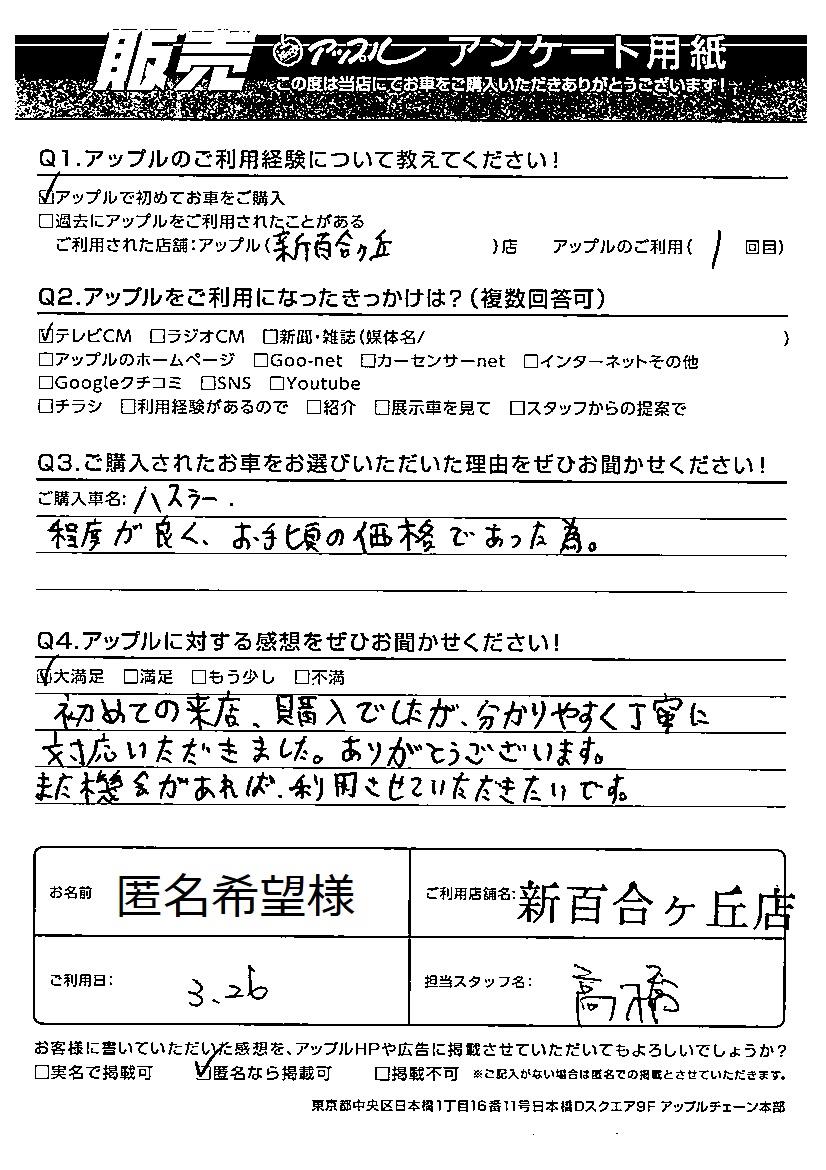 販売 アップル アンケート用紙
この度は当店にてお車をご購入いただきありがとうございます！
Q1.アップルのご利用経験について教えてください！
☑アップルで初めてお車をご購入
□過去にアップルをご利用されたことがある
ご利用された店舗：アップル（新百合ヶ丘 ）店 アップルのご利用（ 1 回目）
Q2.アップルをご利用になったきっかけは？（複数回答可）
☑テレビCM □ラジオCM □新聞・雑誌（媒体名/ ）
□アップルのホームページ □Goo-net □カーセンサーnet □インターネットその他
□Googleクチコミ □SNS □Youtube
□チラシ □利用経験があるので □紹介 □展示車を見て □スタッフからの提案で
Q3.ご購入されたお車をお選びいただいた理由をぜひお聞かせください！
ご購入車名：ハスラー．
程度が良く、お手頃の価格であった為。
Q4.アップルに対する感想をぜひお聞かせください！
☑大満足 □満足 □もう少し □不満
初めての来店、購入でしたが、分かりやすく丁寧に
対応いただきました。ありがとうございます。
また機会があれば、利用させていただきたいです。
お名前 匿名希望様 ご利用店舗名：新百合ヶ丘店
ご利用日： 3.26 担当スタッフ名： 高橋
お客様に書いていただいた感想を、アップルHPや広告に掲載させていただいてもよろしいでしょうか？
□実名で掲載可 ☑匿名なら掲載可 □掲載不可 ※ご記入がない場合は匿名での掲載とさせていただきます。
東京都中央区日本橋1丁目16番11号日本橋Dスクエア9F アップルチェーン本部